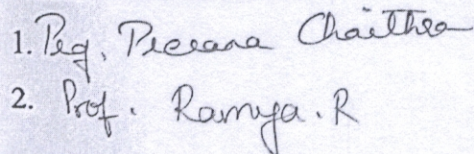 1. Prof. Prerana Chaithra
2. Prof. Ramya. R